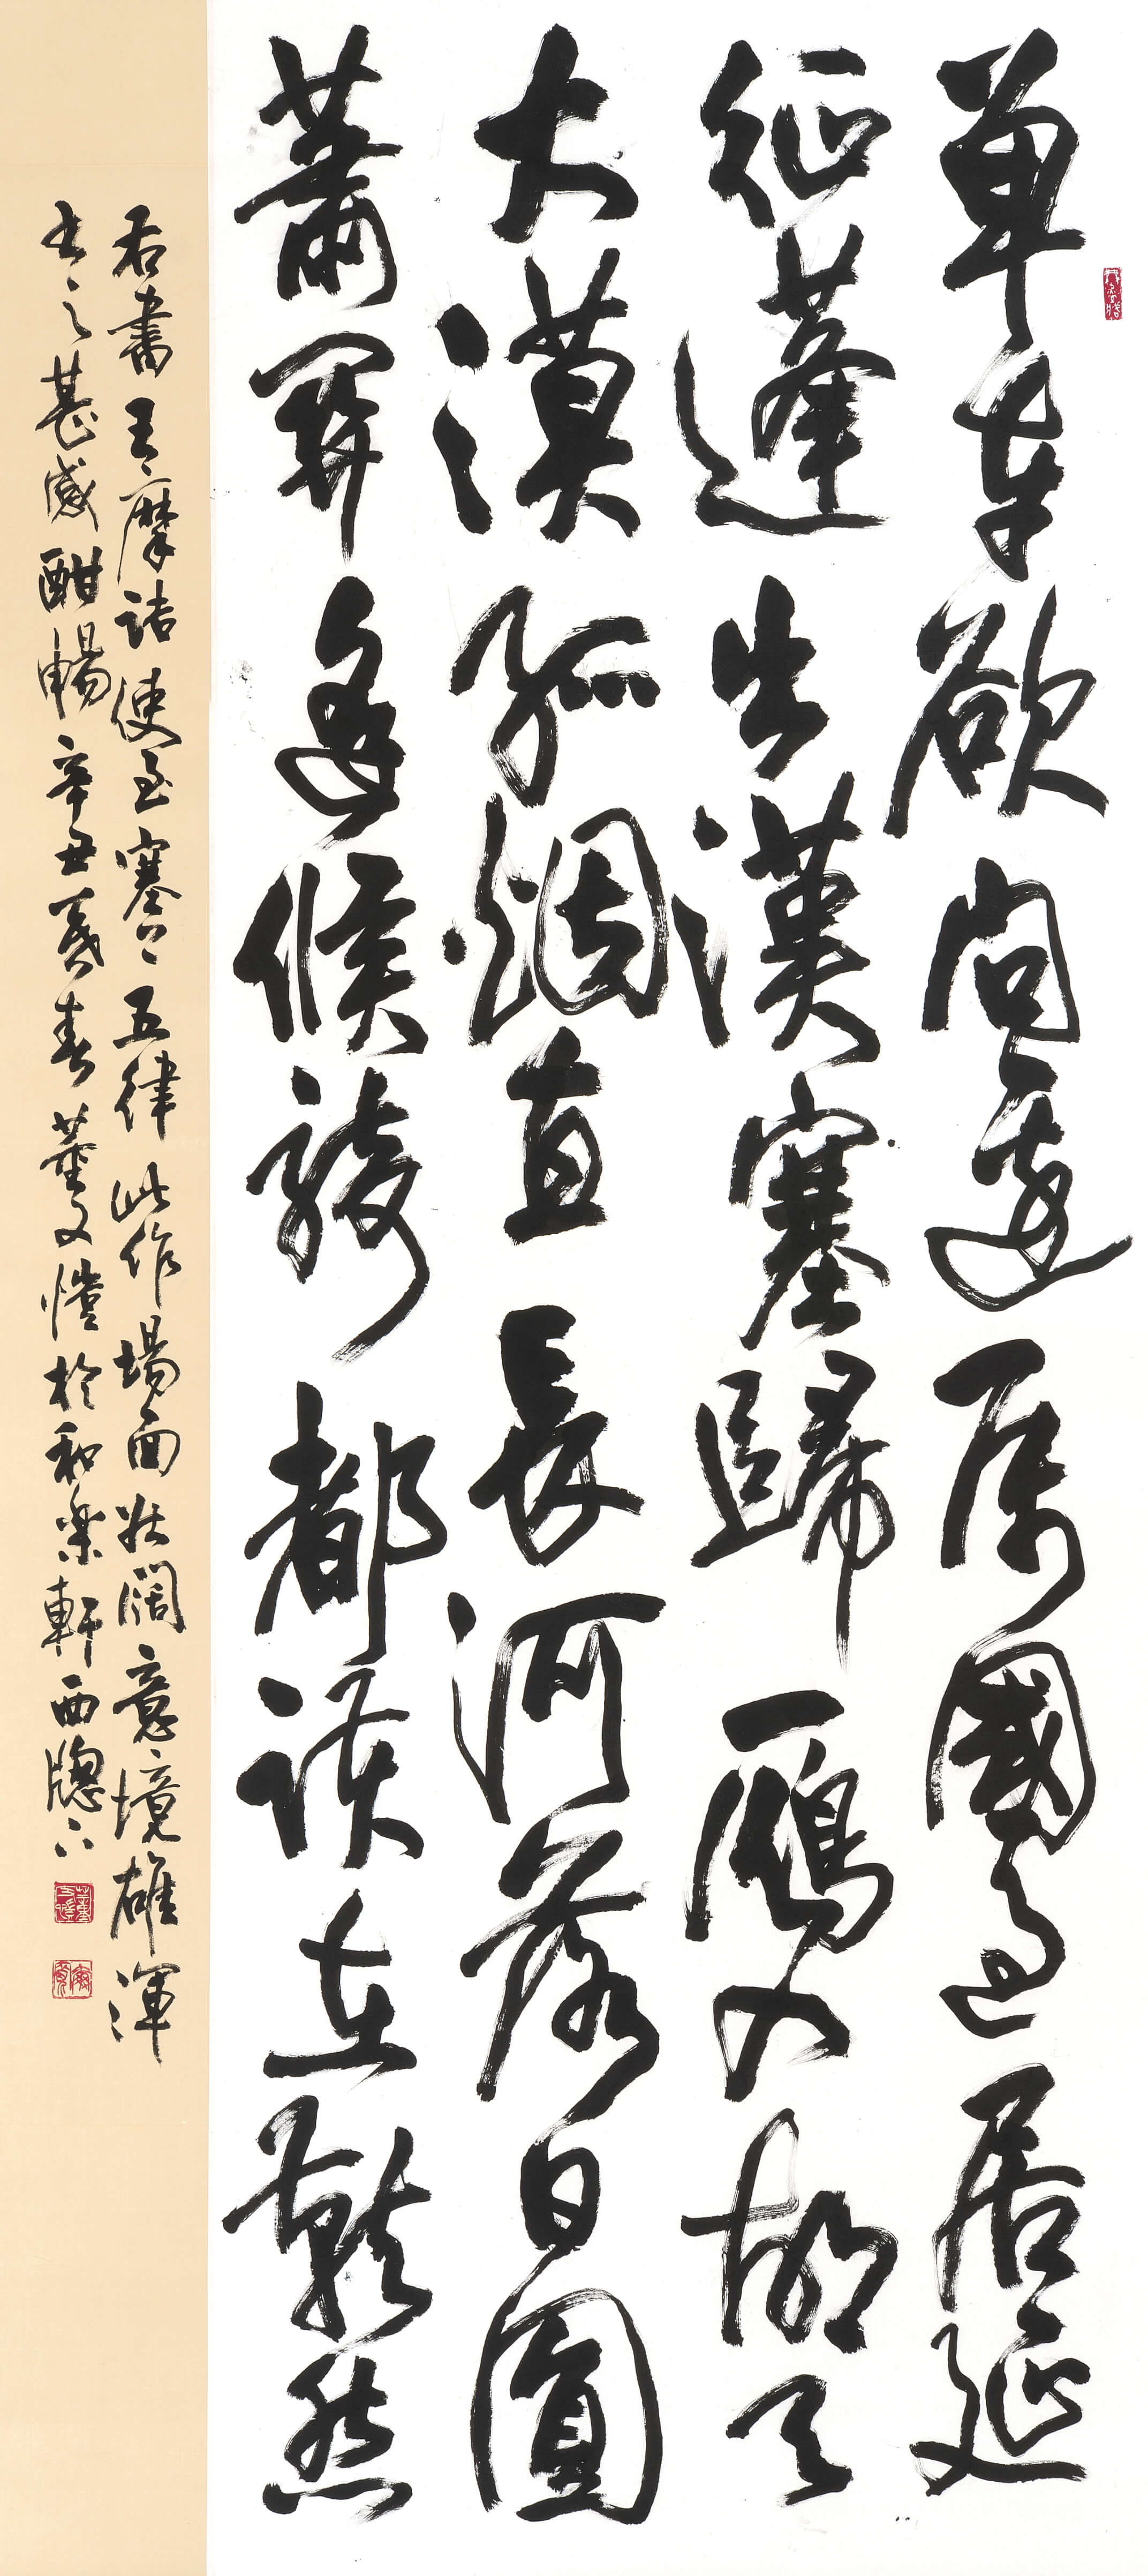 單車欲問邊屬國過居延
征蓬出漢塞歸鴈入胡天
大漠孤烟直長河落日圓
蕭關逢候騎都護在燕然
右書王摩詰使至塞上五律此作場面壯闊意境雄渾
書之甚感酣暢辛丑莫春董文愷於和樂軒西牕下